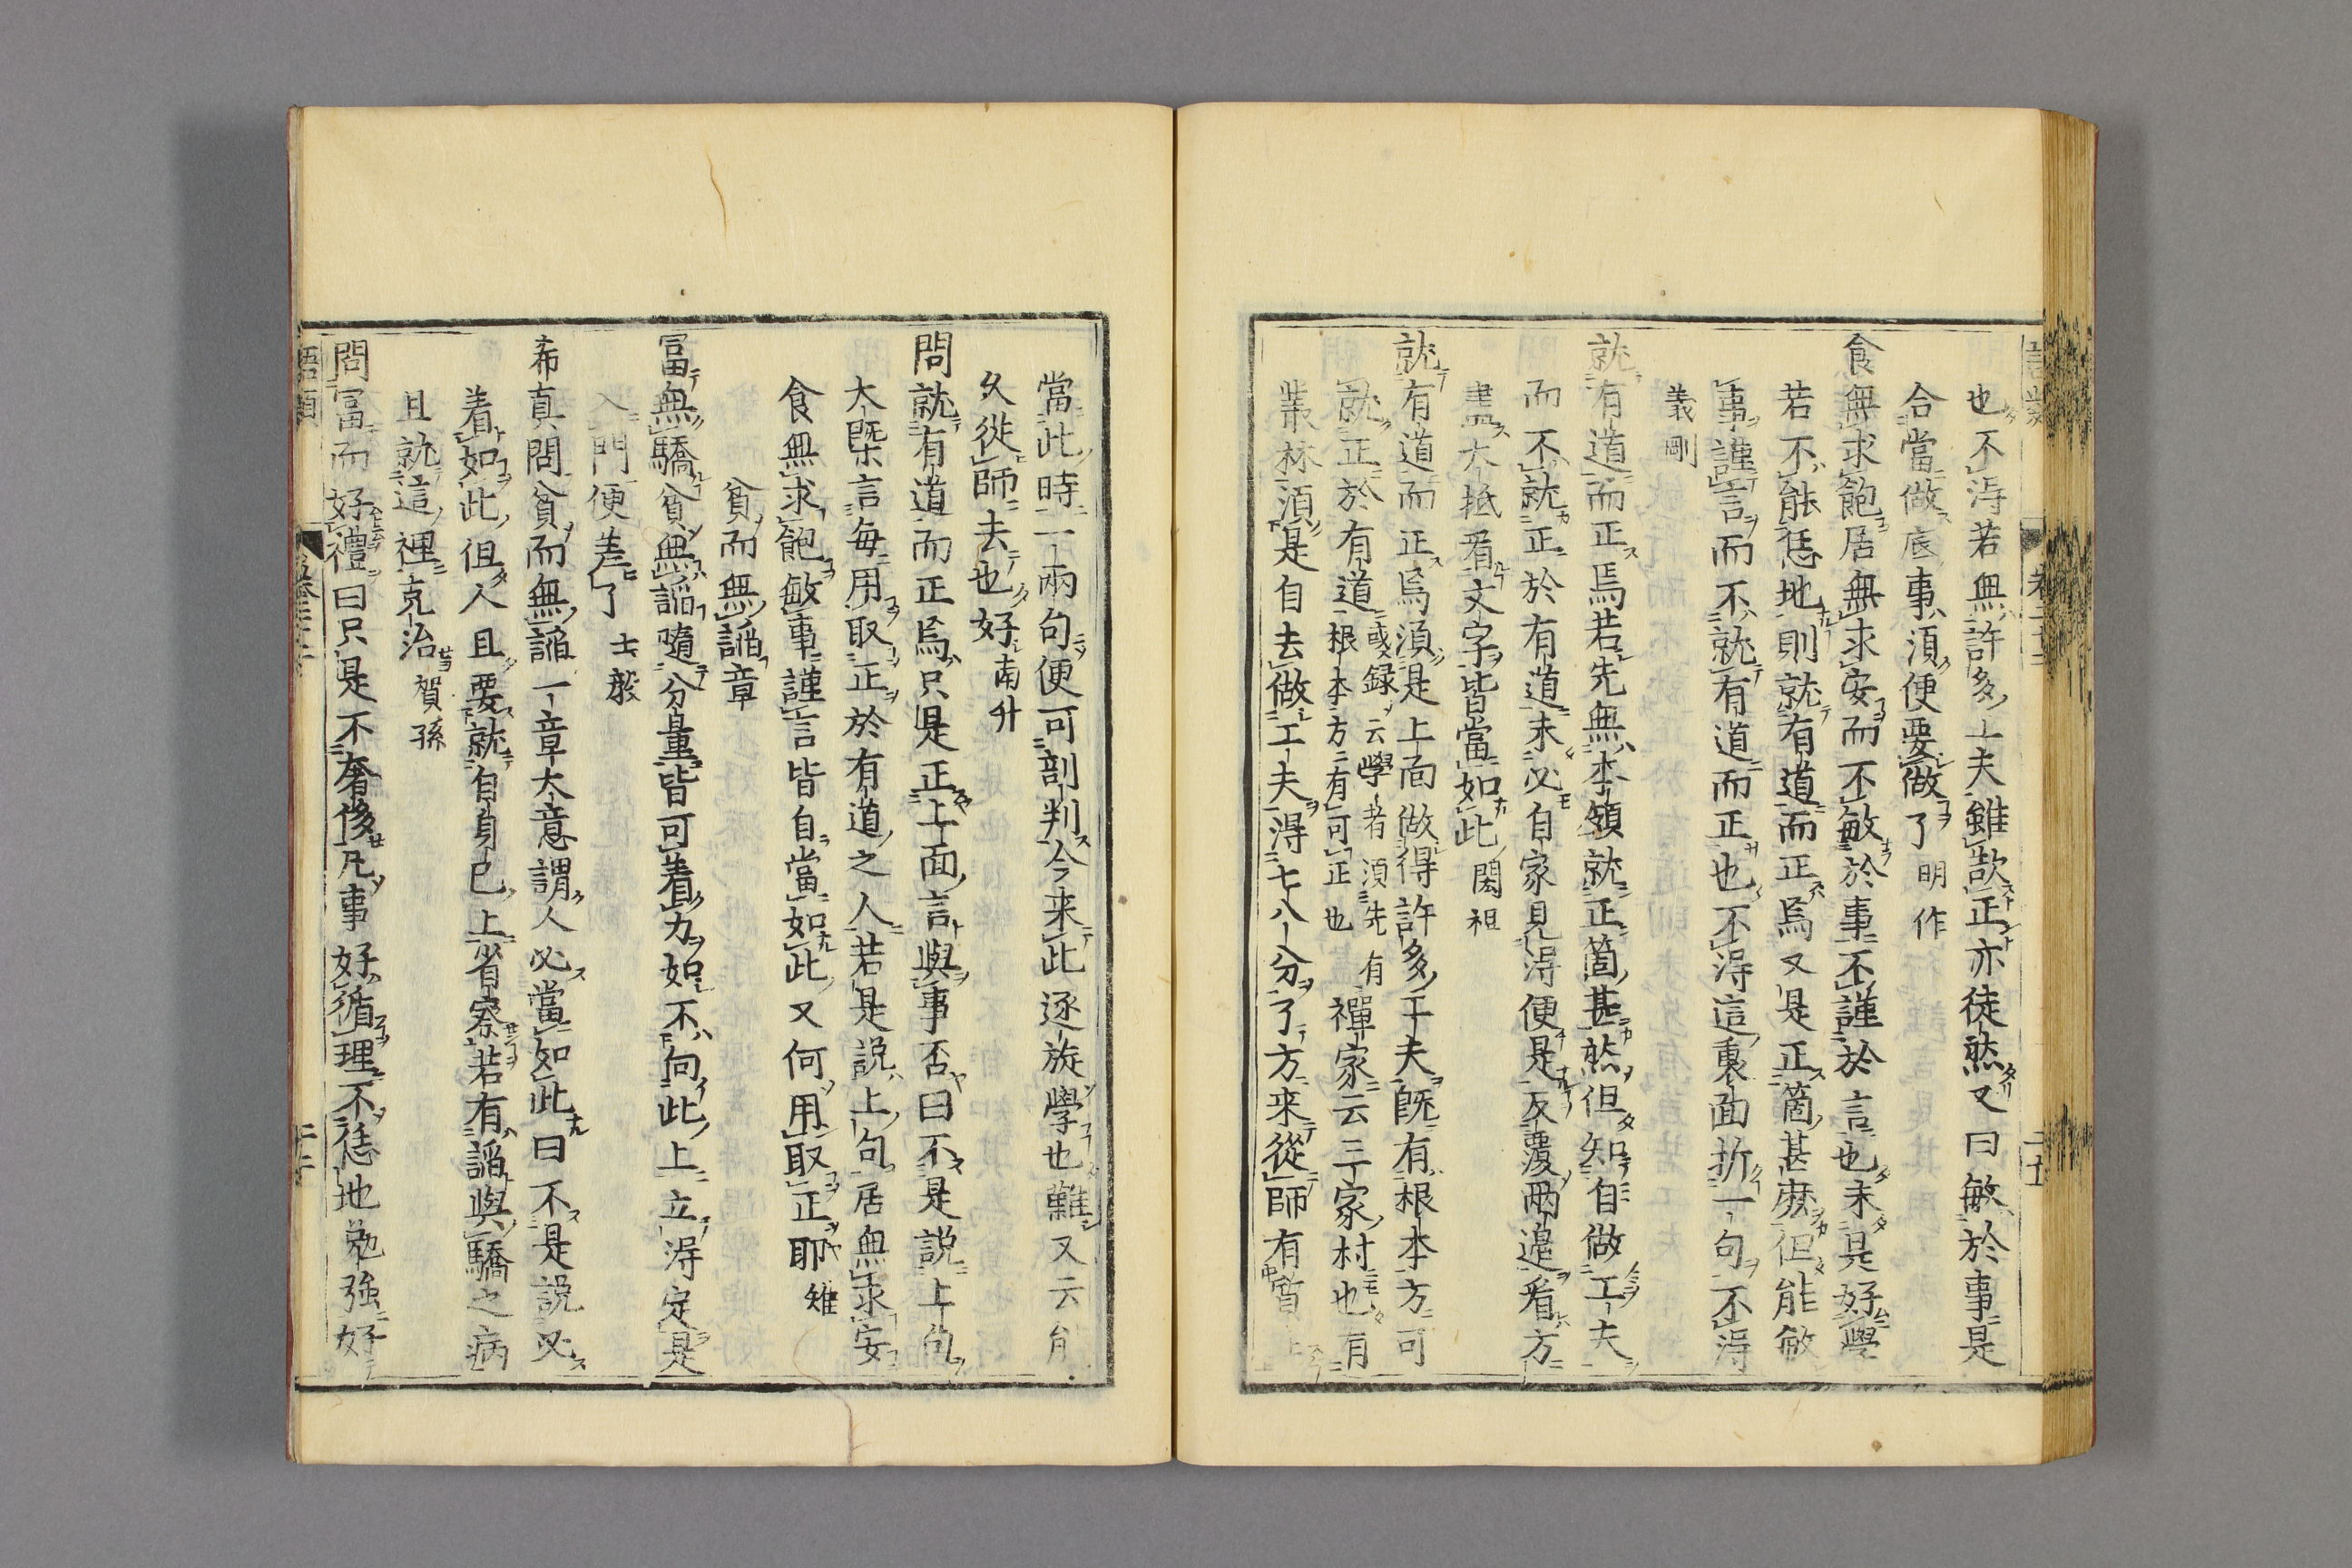 也不得若無許多工夫雖欲正亦徒然又曰敏於事是
合當做底事須便要做了明作
食無求飽居無求安而不敏於事不謹於言也未是好學
若不能恁地則就有道而正焉又是正箇甚麽但能敏
事謹言而不就有道而正也不得這裏面折一句不得
義剛
就有道而正焉若先無本領就正箇甚然但知自做工夫
而不就正於有道未必自家見得便是反覆兩邊看方
盡大抵看文字皆當如此閎祖
就有道而正焉須是上面做得許多工夫既有根本方可
就正於有道或録云學者須先有根本方有可正也禪家云三家村也有
叢林須是自去做工夫得七八分了方来從師有質
當此時一兩句便可剖判今来此逐旋學也難又云能
久從師去也好南升
問就有道而正焉只是正上面言與事否曰不是説上句
大槩言每用取正於有道之人若是説上句居無求安
食無求飽敏事謹言皆自當如此又何用取正耶雉
貧而無諂章
富無驕貧無諂隨分量皆可着力如不向此上立得定是
入門便差了士毅
希真問貧而無諂一章大意謂人必當如此曰不是説必
着如此但人且要就自身己上省察若有諂與驕之病
且就這裡克治賀孫
問富而好禮曰只是不奢侈凡事好循理不恁地勉強好